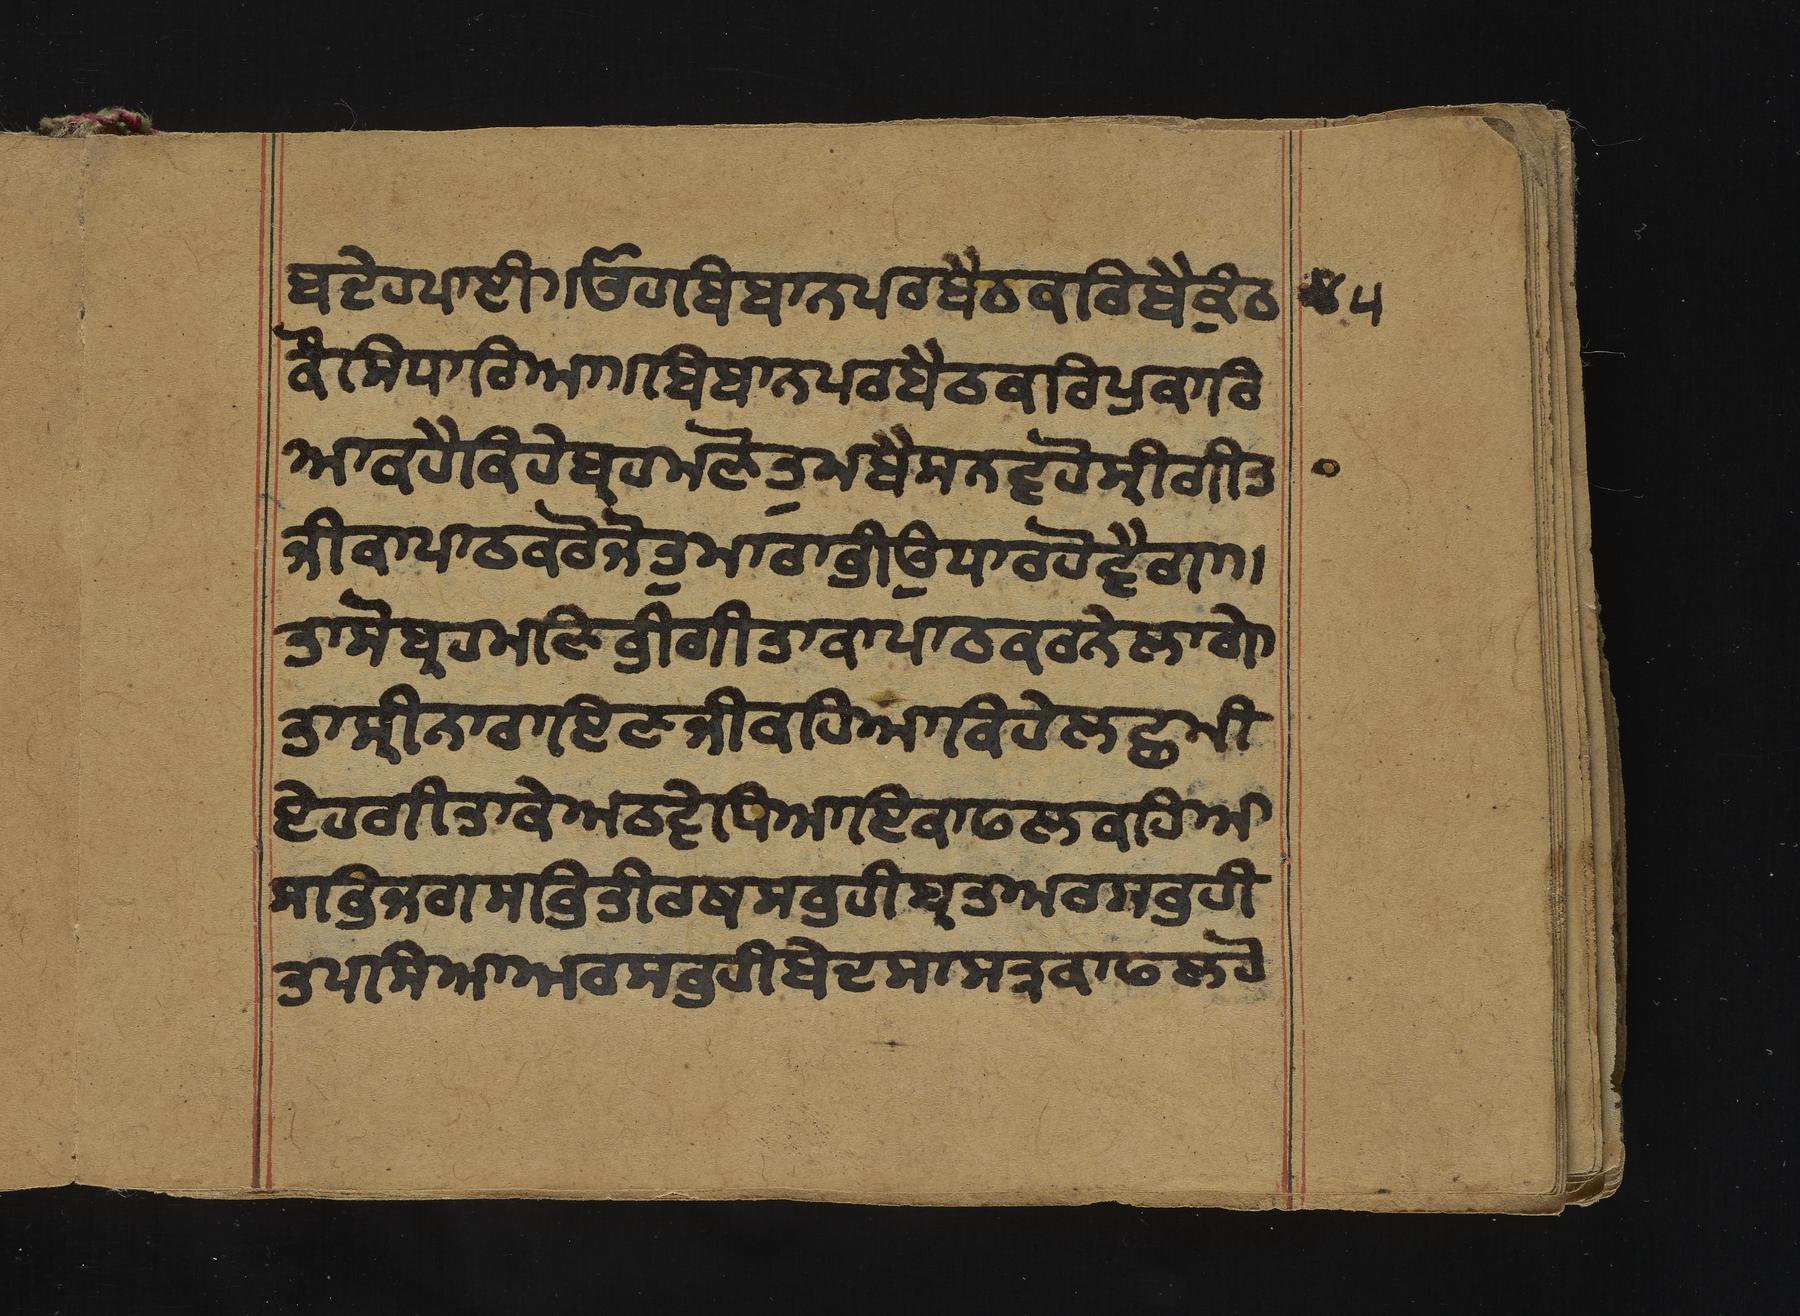 ਬਦੇਹਪਾਈ।ਓਹਿਬਿਬਾਨਪਰਬੈਠਕਰਿਬੈਕੁੰਠ ੪੫
ਕੌਸਿਧਾਰਿਆ॥ਬਿਬਾਨਪਰਬੈਠਕਰਿਪੁਕਾਰਿ
ਆਕਹੈਕਿਹੇਬ੍ਰਹਮਣੋਤੁਮਬੈਸਨਵਹੋਸ੍ਰੀਗੀਤ
ਜੀਕਾਪਾਠਕਰੋਜੋਤੁਮਾਰਾਭੀਉਧਾਰਹੋਵੈਗਾ॥
ਤਾਸੋਬ੍ਰਹਮਣਿਭੀਗੀਤਾਕਾਪਾਠਕਰਨੇਲਾਗੇ
ਤਾਸ੍ਰੀਨਾਰਾਇਣਜੀਕਹਿਆਕਿਹੇਲਛਮੀ
ਏਹਗੀਤਾਕੇਅਠਵੇਧਿਆਇਕਾਫਲਕਹਿਆ
ਸਭਿਜਗਸਭਿਤੀਰਥਸਭੁਹੀਬ੍ਰਤਅਰਸਭੁਹੀ
ਤਪਸਿਆਅਰਸਭੁਹੀਬੇਦਸਾਸਤ੍ਰਕਾਫਲਹੋ